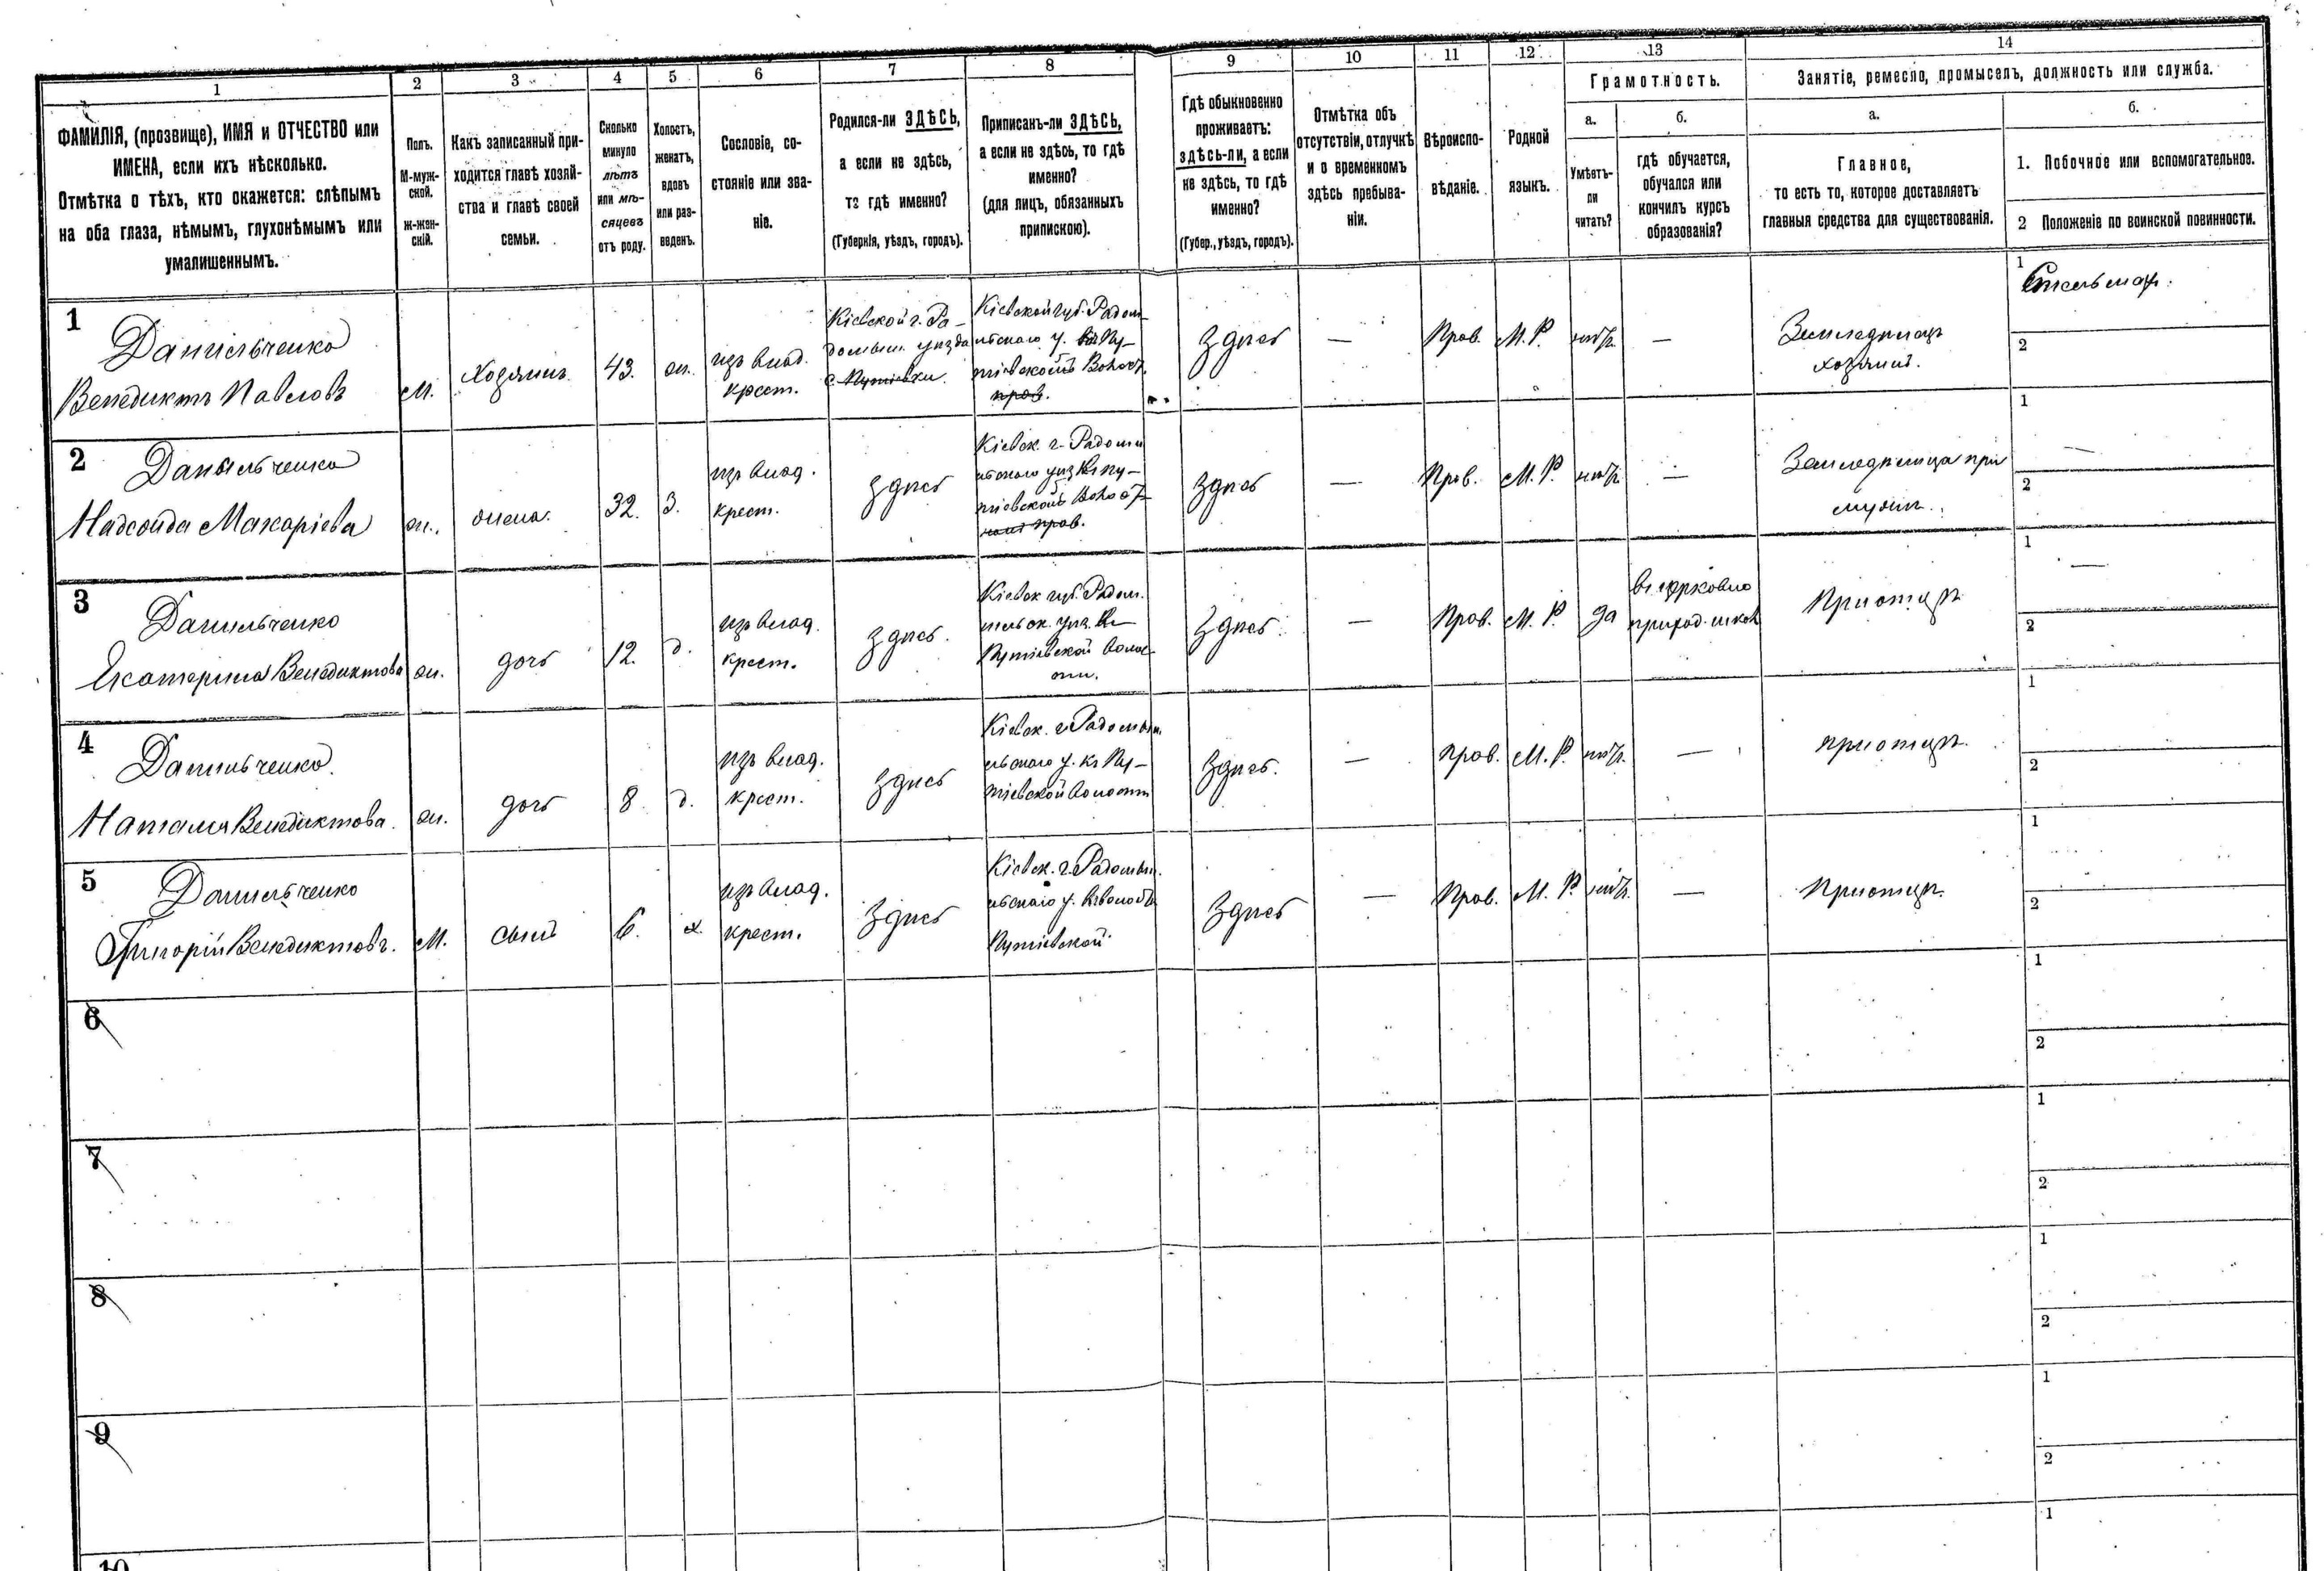 1
2
3
4
5
6
7
8
9
10
11
12
13
14
Грамотность.
Занятіе, ремесло, промыселъ, должность или служба.
ФАМИЛІЯ, (прозвище), ИМЯ и ОТЧЕСТВО или
ИМЕНА, если ихъ нѣсколько.
Отмѣтка о тѣхъ, кто окажется: слѣпымъ
на оба глаза, нѣмымъ, глухонѣмымъ или
умалишеннымъ.
Полъ.
М-муж-
ской.
ж-жен-
скій.
Какъ записанный при-
ходится главѣ хозяй-
ства и главѣ своей
семьи.
Сколько
минуло
лѣтъ
или мѣ-
сяцевъ
отъ роду.
Холостъ,
женатъ,
вдовъ
или раз-
веденъ.
Сословіе, со-
стояніе или зва-
ніе.
Родился-ли ЗДѢСЬ,
а если не здѣсь,
то гдѣ именно?
(Губернія, уѣздъ, городъ).
Приписанъ-ли ЗДѢСЬ,
а если не здѣсь, то гдѣ
именно?
(для лицъ, обязанныхъ
припискою).
Гдѣ обыкновенно
проживаетъ:
здѣсь-ли, а если
не здѣсь, то гдѣ
именно?
(Губер., уѣздъ, городъ).
Отмѣтка объ
отсутствіи, отлучкѣ
и о временномъ
здѣсь пребыва-
ніи.
Вѣроиспо-
вѣданіе.
Родной
языкъ.
а.
Умѣетъ-
ли
читать?
б.
гдѣ обучается,
обучался или
кончилъ курсъ
образованія?
а.
Главное,
то есть то, которое доставляетъ
главныя средства для существованія.
б.
1. Побочное или вспомогательное.
2 Положеніе по воинской повинности.
1
Данильченко
Венедиктъ Павловъ
М.
Хозяинъ
43.
ж.
изъ влад.
крест.
Кіевской г. Ра-
домысл. уѣзда
с. Путіевки.
Кіевской губ. Радом-
ысльскаго у. въ Пу-
тіевской Волост.
Здѣсь
—
Прав.
М. Р.
нѣтъ
—
Земледѣлецъ
хозяинъ.
1
Стельмах.
2
2
Данильченко
Надежда Макаріева
ж.
жена.
32.
З.
изъ влад.
крест.
здѣсь
Кіевск. г. Радомы
льскаго уѣз. къ Пу-
тіевской Волост
здѣсь
—
Прав.
М. Р.
нѣтъ
—
Земледѣлица при
мужѣ.
1
—
2
3
Данильченко
Екатерина Венедиктова
ж.
дочь
12.
д.
изъ влад.
крест.
здѣсь.
Кіевск губ. Радом.
мысльск. уѣз. къ
Путіевской волос-
ти.
здѣсь.
—
Прав.
М. Р.
да
въ церковно
приход. школ
При отцѣ
1
—
2
4
Данильченко.
Наталія Венедиктова.
ж.
дочь
8.
д.
изъ влад.
крест.
здѣсь
Кіевск. г. Радомы
льскаго у. къ Пу-
тіевской Волости
здѣсь.
—
Прав.
М. Р.
нѣтъ.
—
при отцѣ.
1
2
5
Данильченко
Григорій Венедиктовъ.
М.
сынъ
6.
х.
изъ влад.
крест.
Здѣсь
Кіевск. г. Радомы
льскаго у. къ волости
Путіевской
Здѣсь
—
Прав.
М. Р.
нѣтъ.
—
При отцѣ.
1
2
6
1
2
7
1
2
8
1
2
9
1
2
10
1